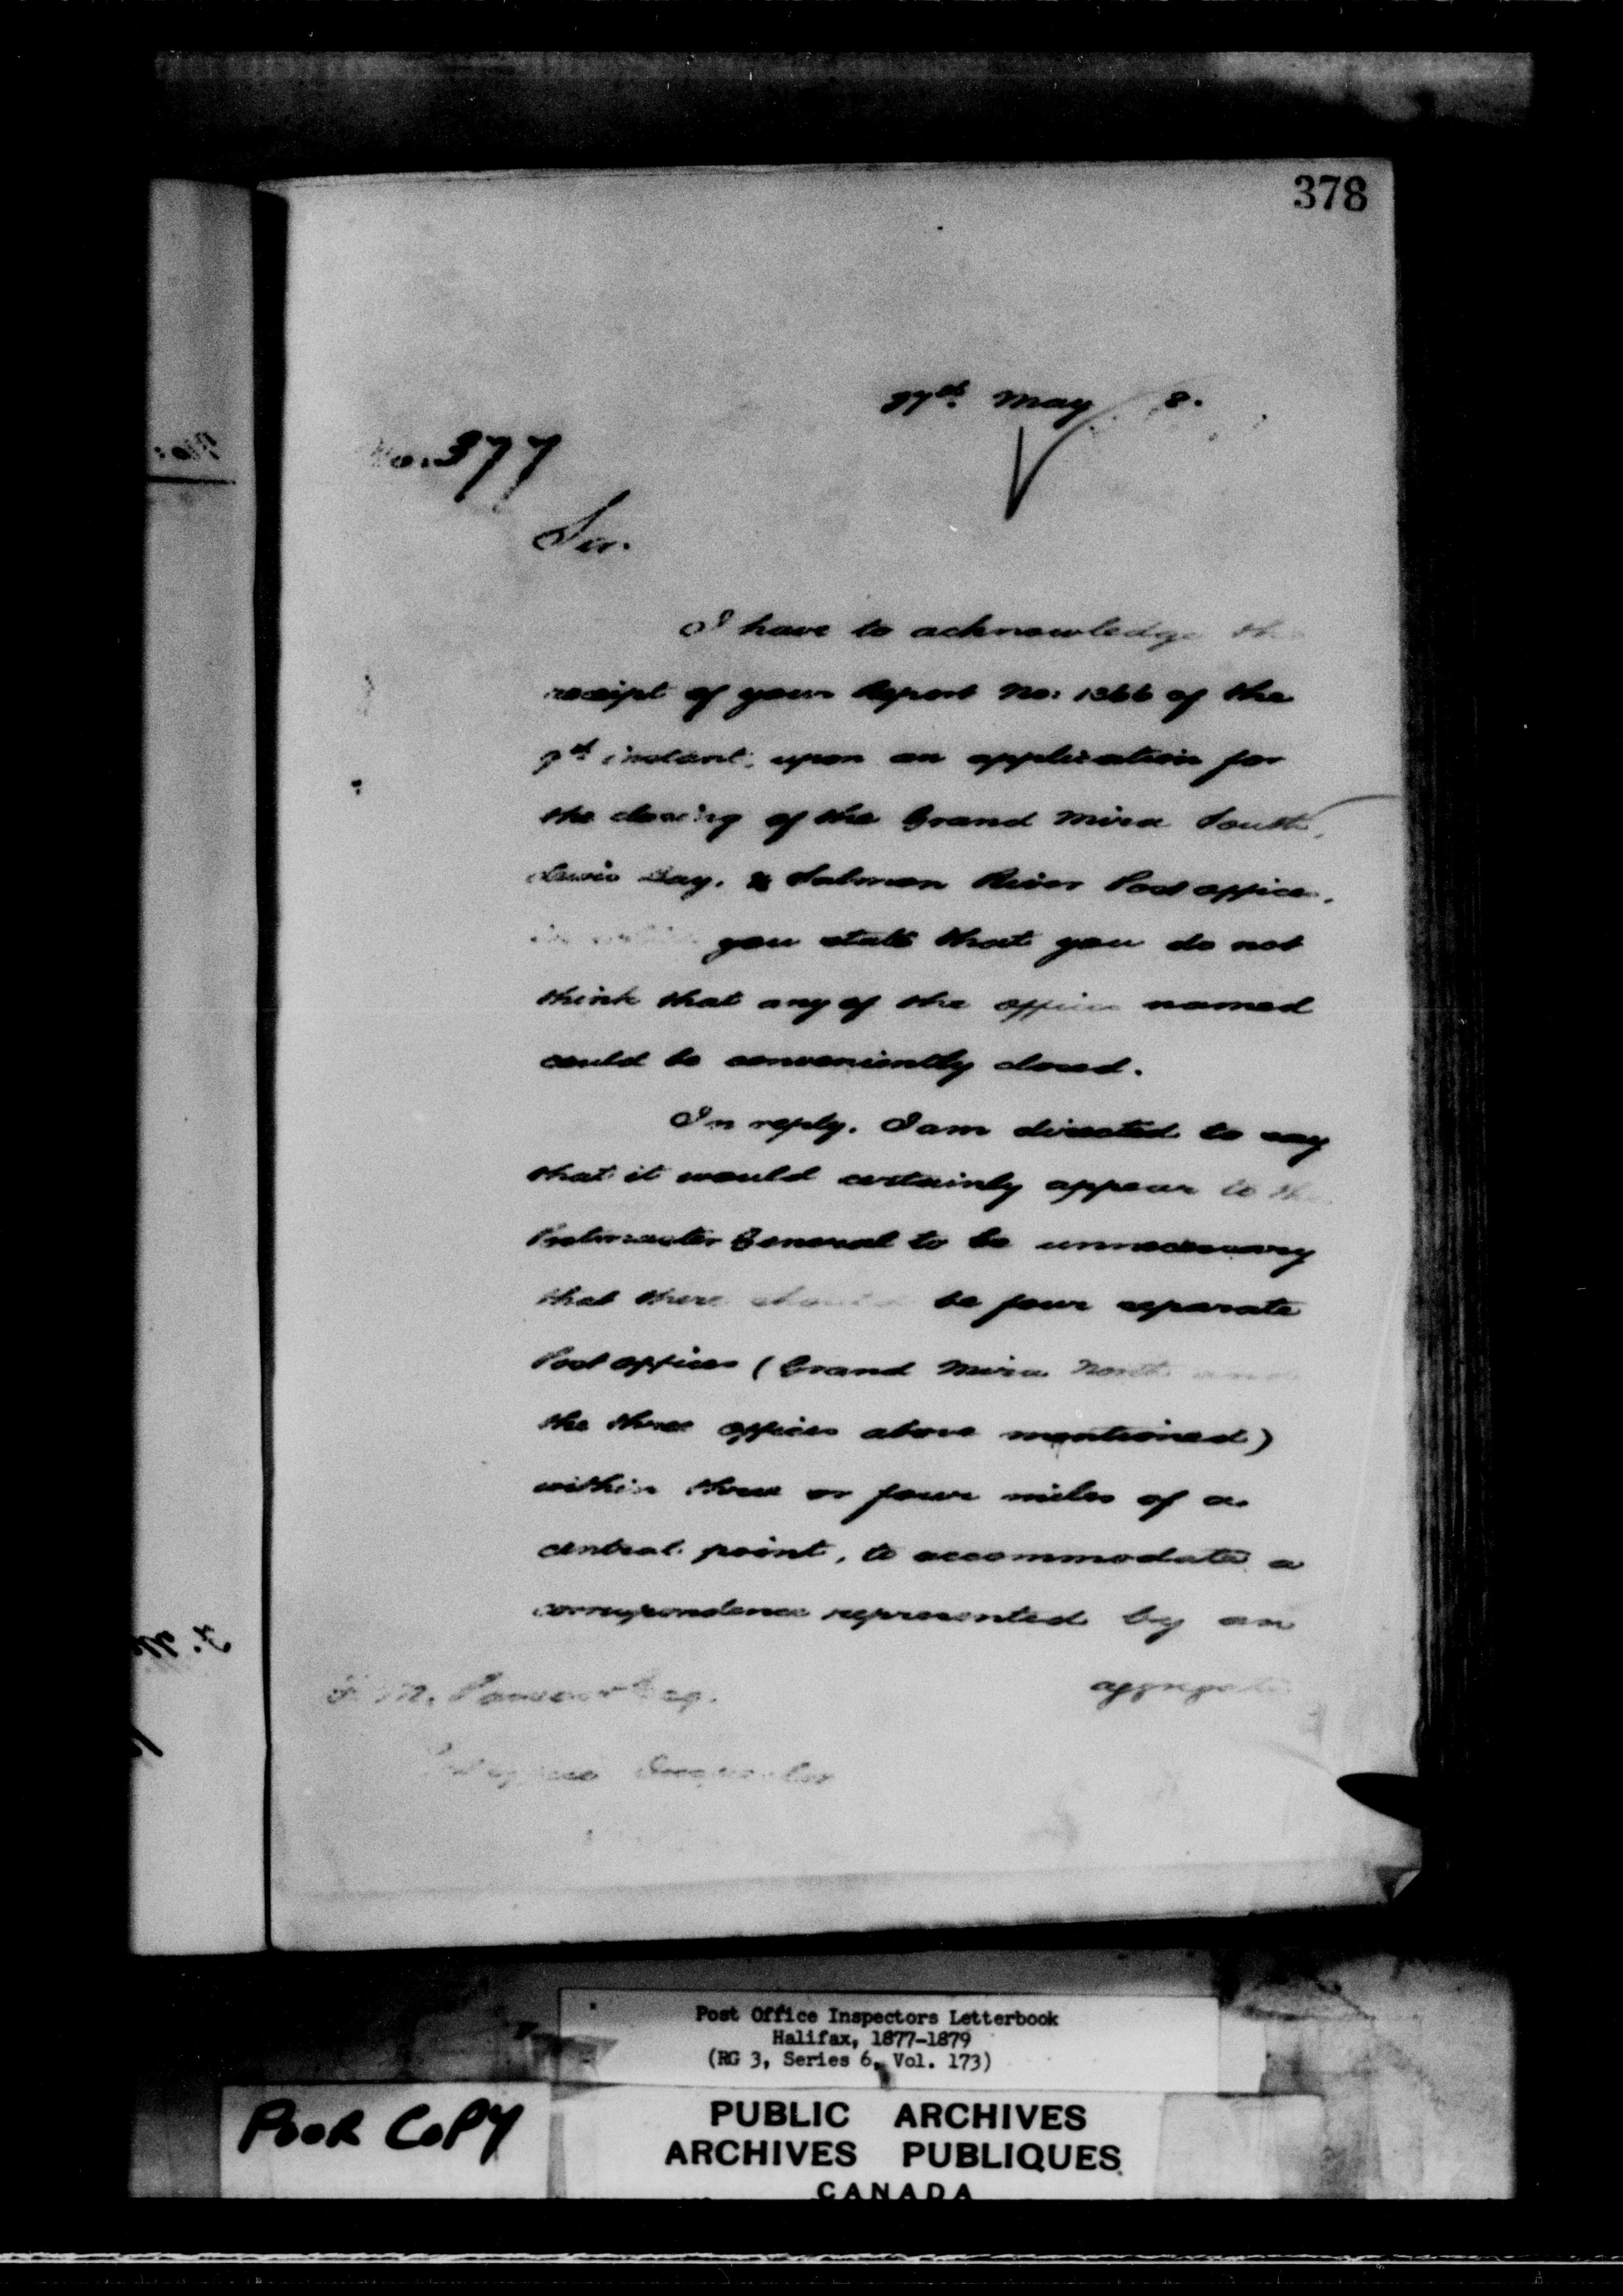 378
27th May 8.
No. 377
Sir.
I have to acknowledge the
receipt of your Report No: 1366 of the
9th instant, upon an application for
the closing of the Grand Mira South,
Lewis Bay, & Salmon River Post offices,
you state that you do not
think that any of the offices named
could be conveniently closed.
In reply, I am directed to say
that it would certainly appear to the
Postmaster General to be unnecessary
that there should be four separate
Post offices (Grand Mira North and
the three offices above mentioned)
within three or four miles of a
central point, to accommodate a
correspondence represented by an
aggregate
M. Esq.
Post office Inspector
Post Office Inspectors Letterbook
Halifax, 1877-1879
(RG 3, Series 6, Vol. 173)
POOR COPY
PUBLIC ARCHIVES
ARCHIVES PUBLIQUES
CANADA